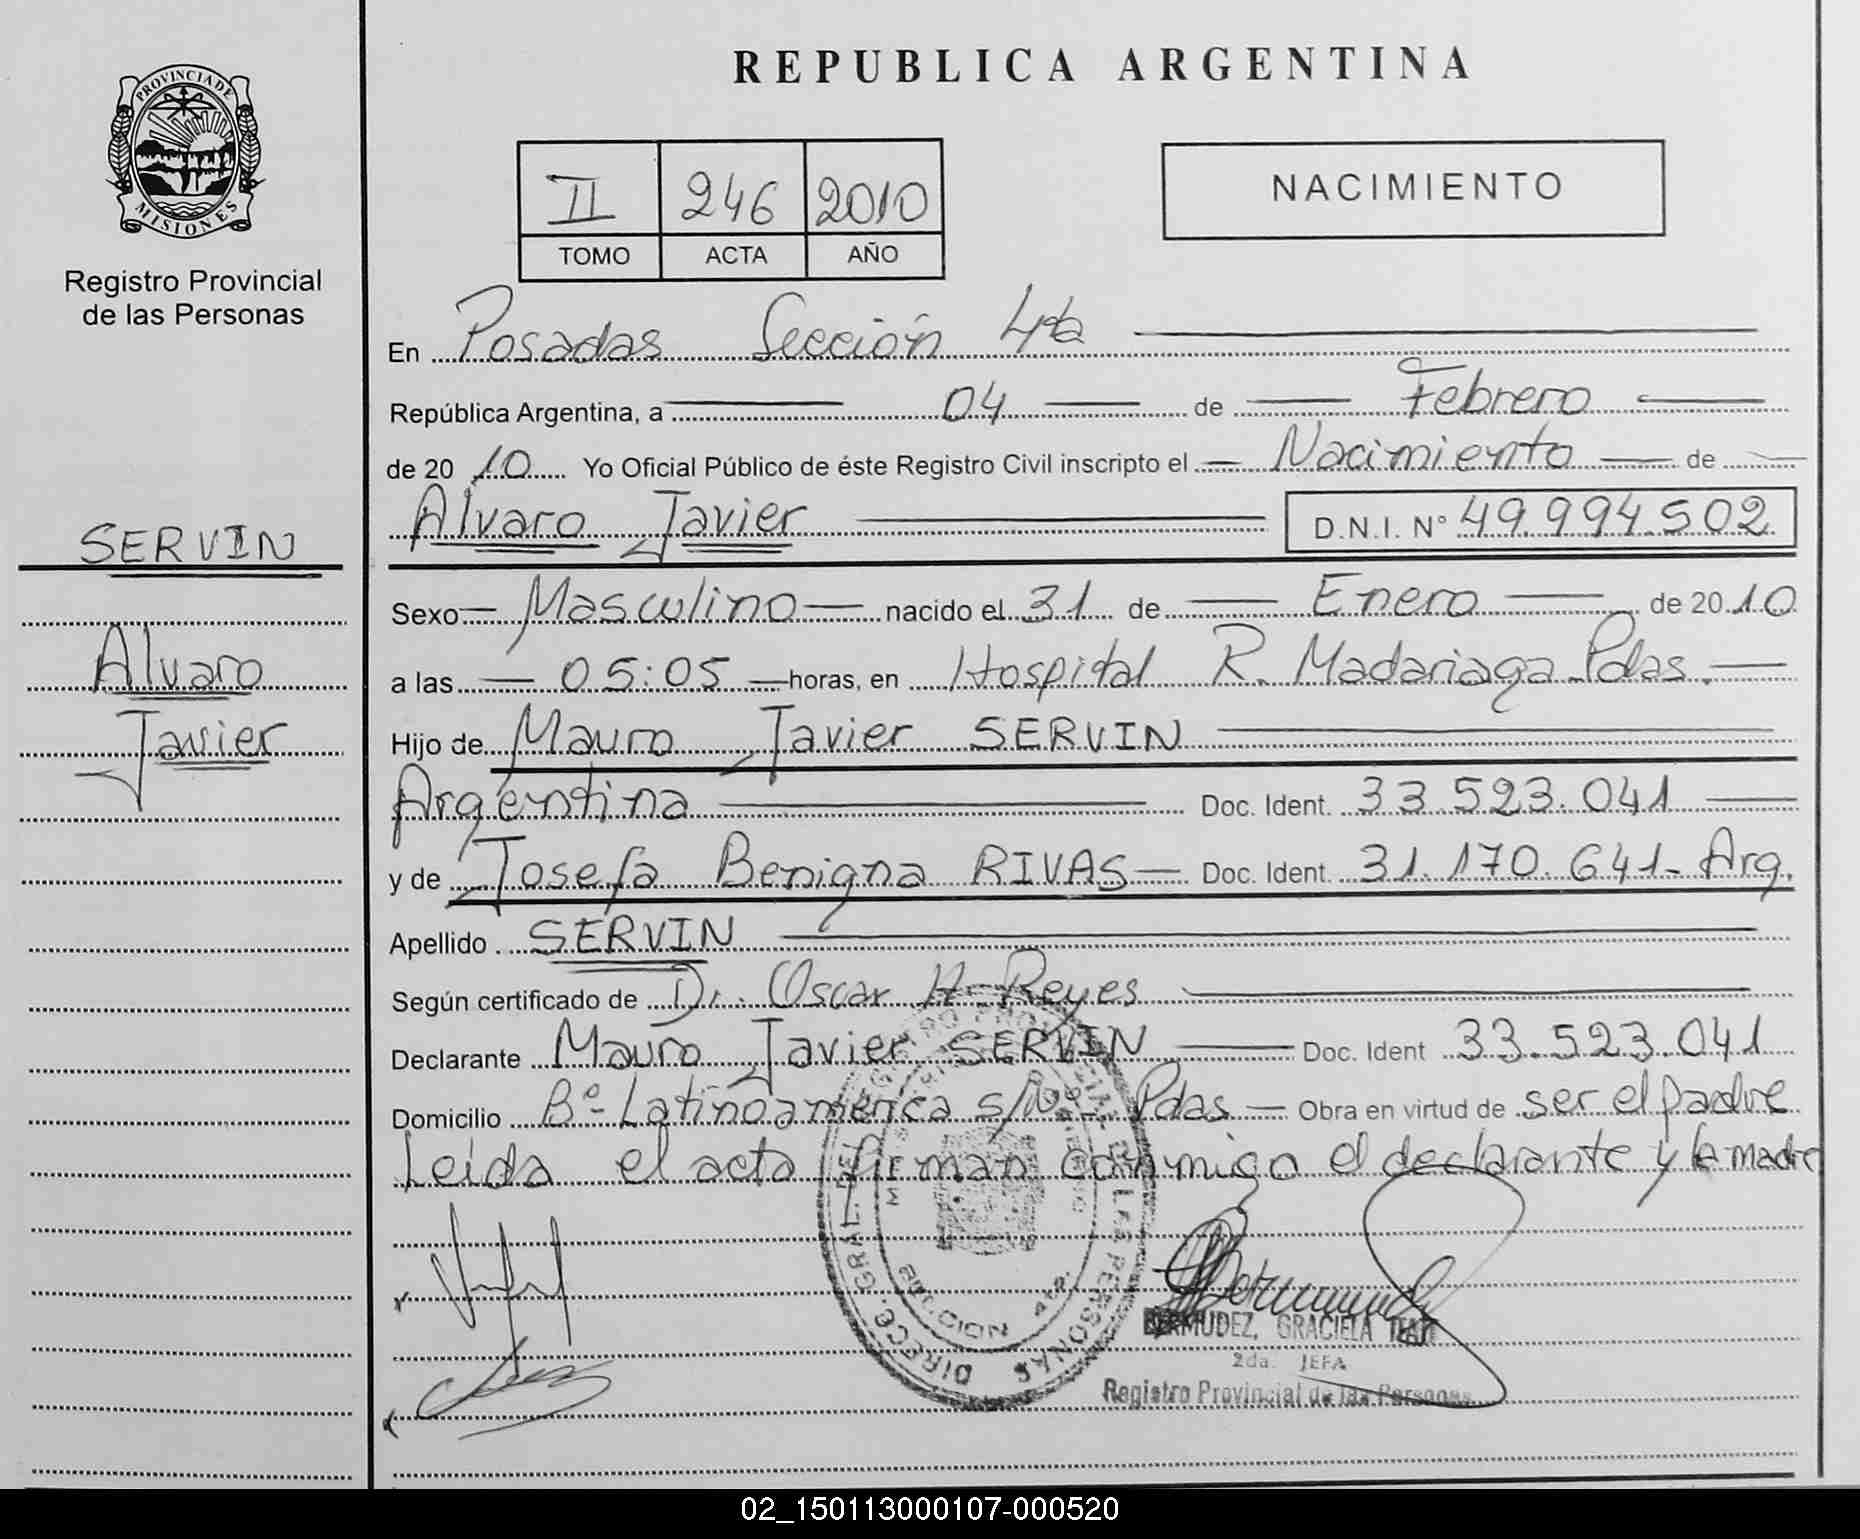 REPUBLICA ARGENTINA
PROVINCIA DE
MISIONES
Registro Provincial
de las Personas
II 246 2010
TOMO ACTA AÑO
NACIMIENTO
En Posadas Sección 4ta
República Argentina, a 04 de Febrero
de 2010 Yo Oficial Público de éste Registro Civil inscripto el Nacimiento de
Alvaro Javier D.N.I. N° 49.994.502
SERVIN
Alvaro
Javier
Sexo Masculino nacido el 31 de Enero de 2010
a las 05:05 horas, en Hospital R. Madariaga Pdas.
Hijo de Mauro Javier SERVIN
Argentina Doc. Ident. 33.523.041
y de Josefa Benigna RIVAS Doc. Ident. 31.170.641- Arg.
Apellido SERVIN
Según certificado de Dr. Oscar A. Reyes
Declarante Mauro Javier SERVIN Doc. Ident 33.523.041
Domicilio Bº- Latinoamerica s/Nº- Pdas Obra en virtud de ser el padre
Leida el acta firman conmigo el declarante y la madre
BERMUDEZ, GRACIELA
2da. JEFA
Registro Provincial de las Personas
02_150113000107-000520